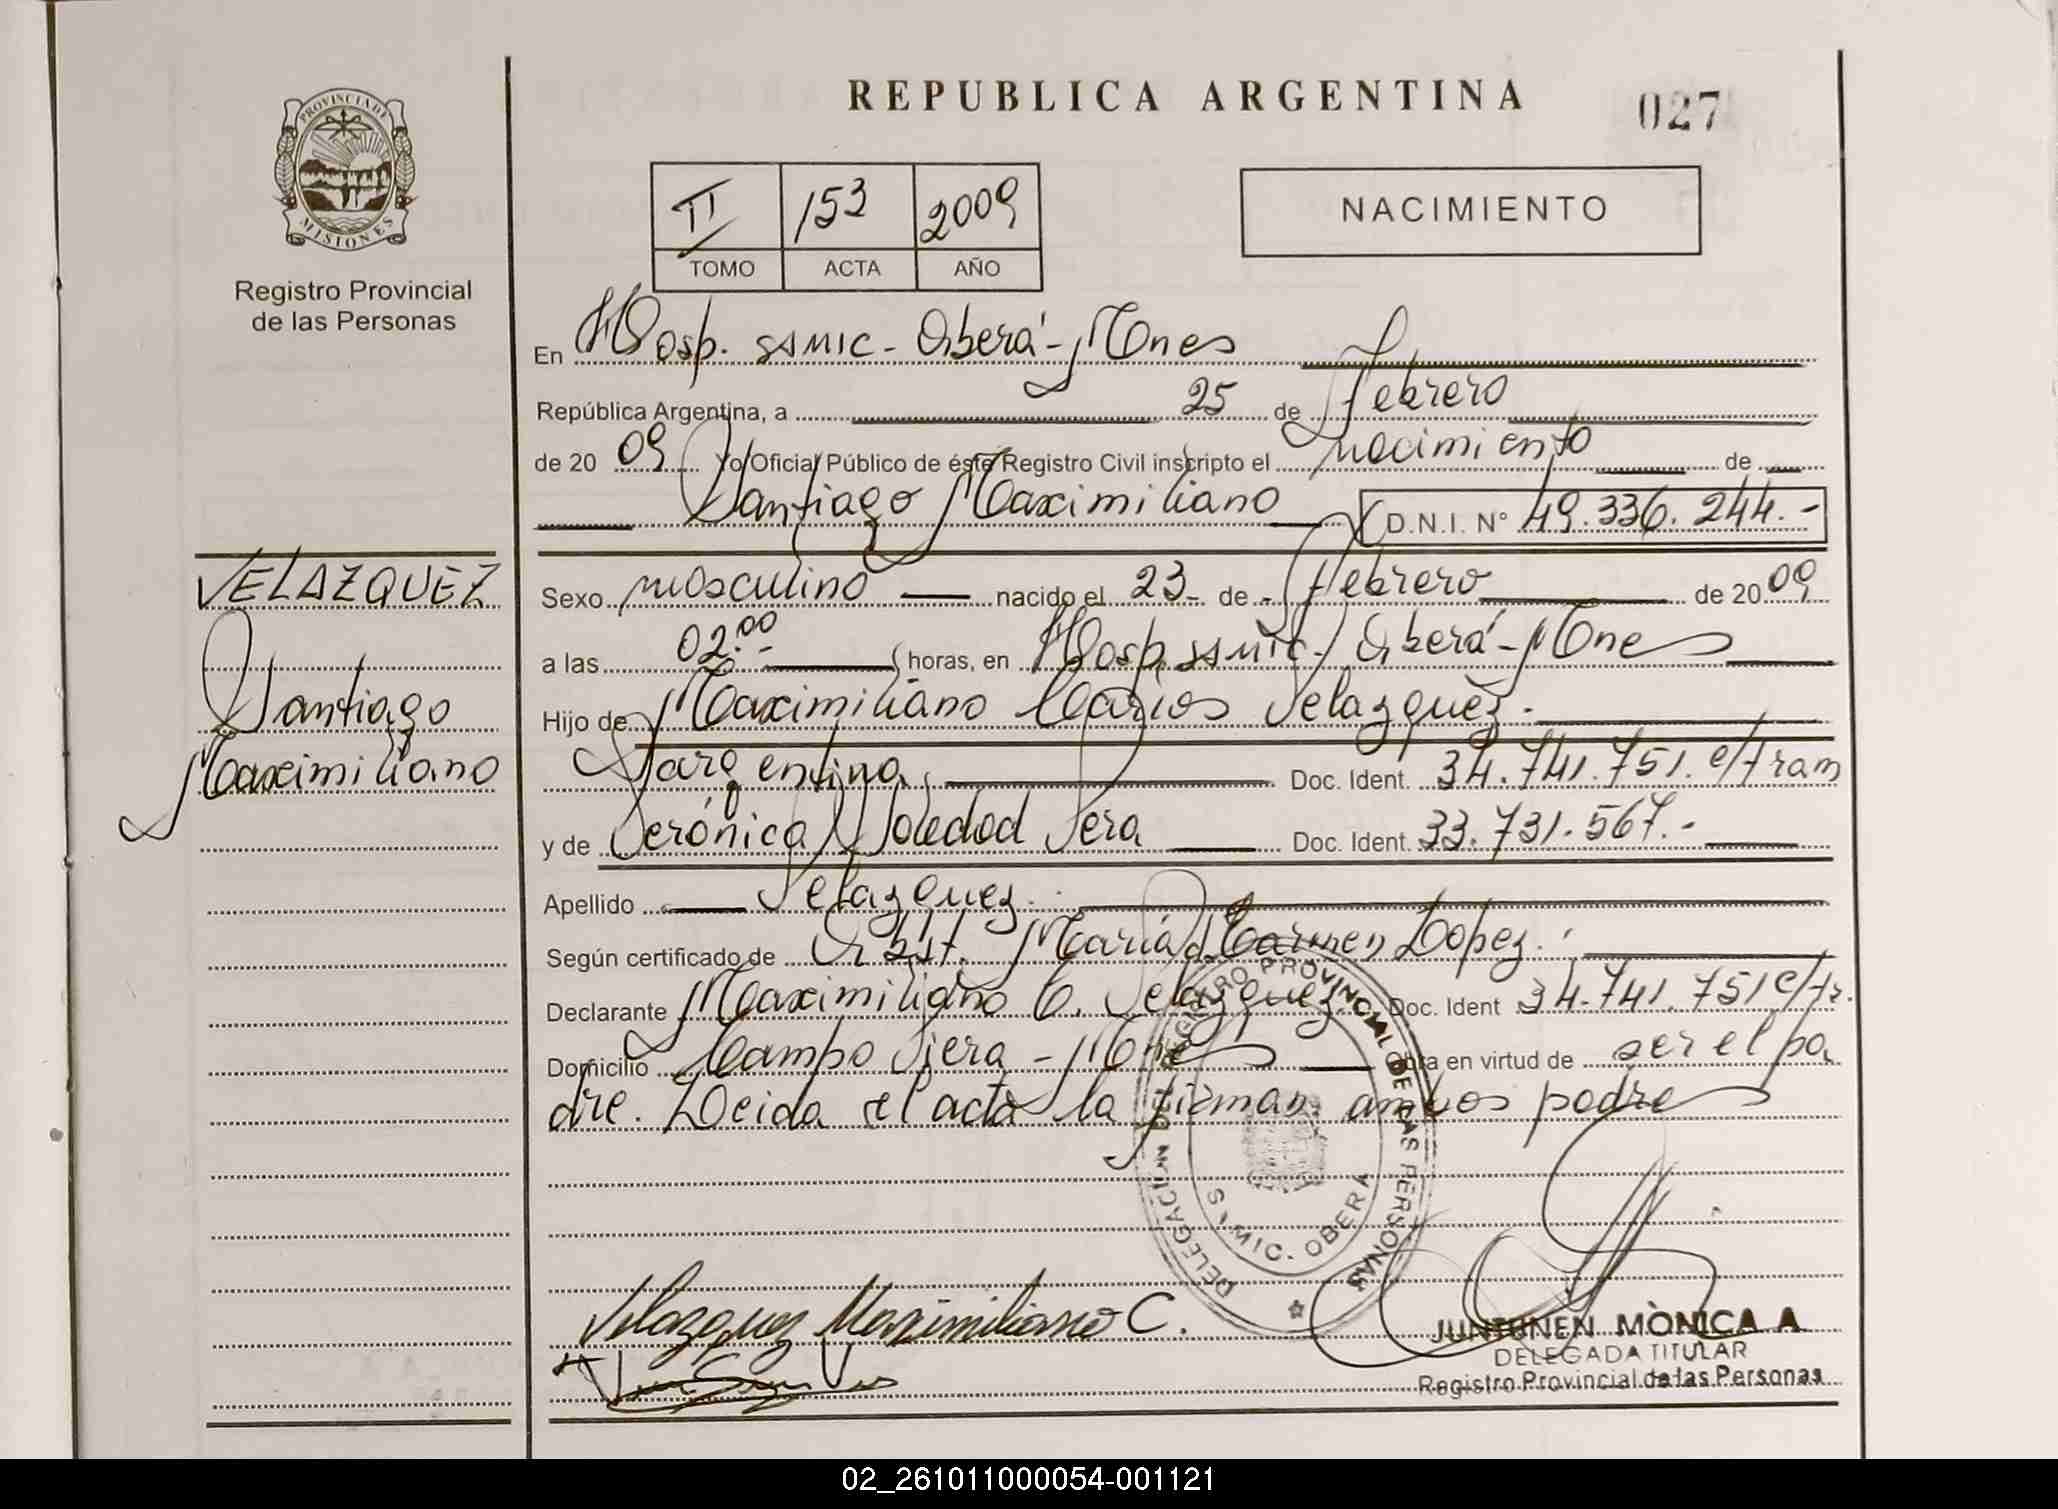 REPUBLICA ARGENTINA
027
PROVINCIA DE
MISIONES
Registro Provincial
de las Personas
II 153 2009
TOMO ACTA AÑO
NACIMIENTO
En Hosp. SAMIC - Oberá - Mnes
República Argentina, a 25 de Febrero
de 2009 Yo Oficial Público de éste Registro Civil inscripto el nacimiento de
Santiago Maximiliano D.N.I. N° 49.336.244.-
VELAZQUEZ
Santiago
Maximiliano
Sexo masculino nacido el 23 de Febrero de 2009
a las 02:00 horas, en Hosp. SAMIC - Oberá - Mnes
Hijo de Maximiliano Carlos Velazquez.
argentina Doc. Ident. 34.741.751. e/tram
y de Verónica Soledad Vera Doc. Ident. 33.731.567.-
Apellido Velazquez.
Según certificado de Obst. María d. Carmen Lopez.
Declarante Maximiliano C. Velazquez Doc. Ident 34.741.751 e/tr.
Domicilio Campo Viera - Mnes Obra en virtud de ser el pa
dre. Leida el acta la firman ambos padres
REGISTRO PROVINCIAL DE LAS PERSONAS
DELEGACION
SAMIC. OBERA
Velazquez Maximiliano C.
JUNTUNEN MÒNICA A
DELEGADA TITULAR
Registro Provincial de las Personas
02_261011000054-001121